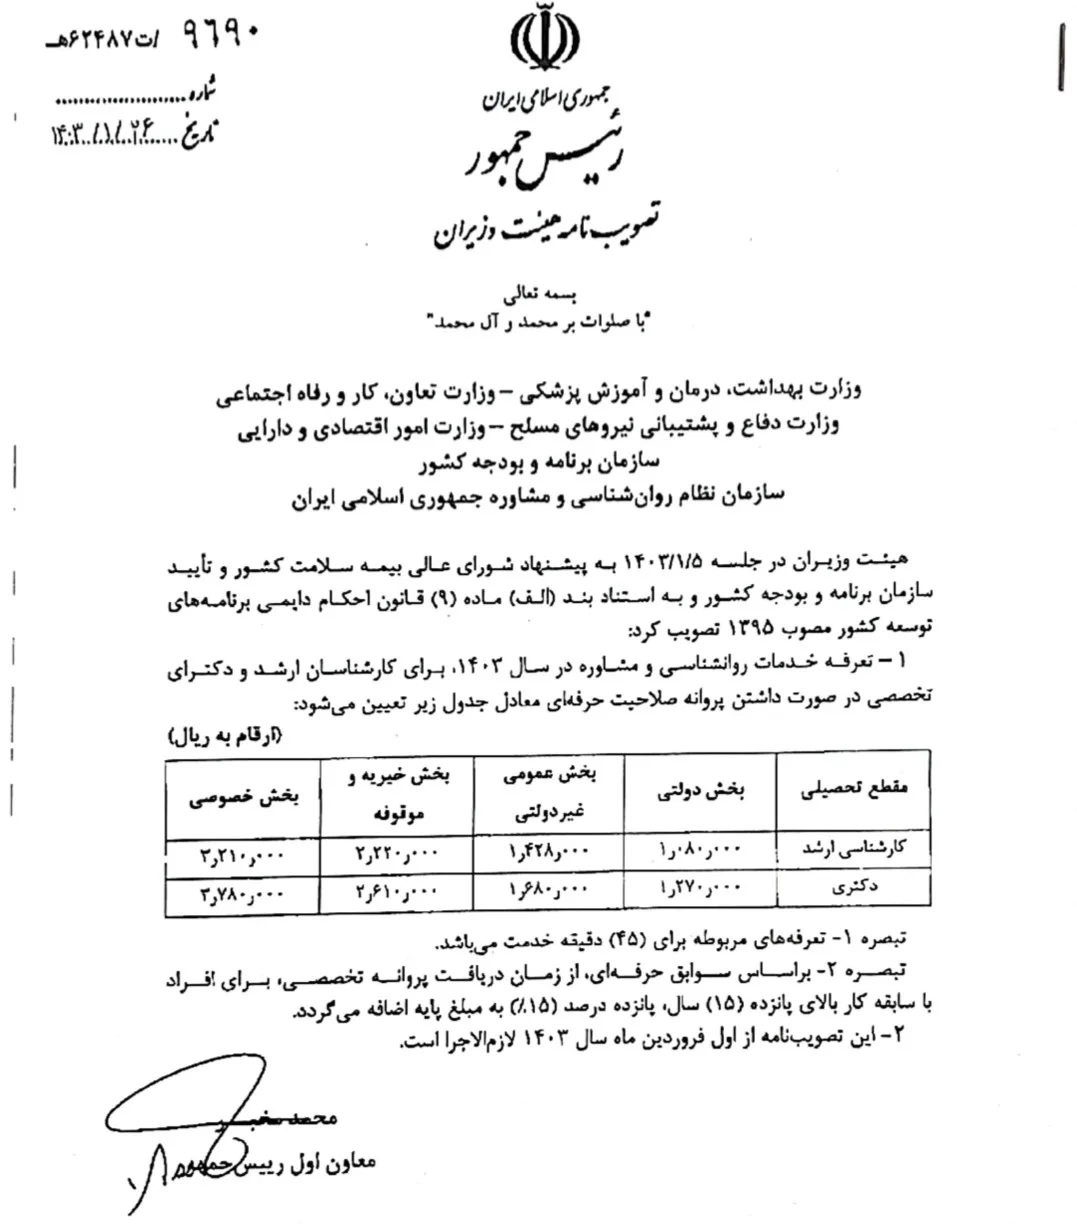 ۹۶۹۰ /ت۶۲۴۸۷هـ
شماره......................
تاریخ......۱۴۰۳/۱/۲۶
جمهوری اسلامی ایران
رئیس جمهور
تصویب نامه هیئت وزیران
بسمه تعالی
"با صلوات بر محمد و آل محمد"
وزارت بهداشت، درمان و آموزش پزشکی – وزارت تعاون، کار و رفاه اجتماعی
وزارت دفاع و پشتیبانی نیروهای مسلح – وزارت امور اقتصادی و دارایی
سازمان برنامه و بودجه کشور
سازمان نظام روان‌شناسی و مشاوره جمهوری اسلامی ایران
هیئت وزیران در جلسه ۱۴۰۳/۱/۵ به پیشنهاد شورای عالی بیمه سلامت کشور و تأیید
سازمان برنامه و بودجه کشور و به استناد بند (الف) ماده (۹) قانون احکام دایمی برنامه‌های
توسعه کشور مصوب ۱۳۹۵ تصویب کرد:
۱ – تعرفه خدمات روانشناسی و مشاوره در سال ۱۴۰۳، برای کارشناسان ارشد و دکترای
تخصصی در صورت داشتن پروانه صلاحیت حرفه‌ای معادل جدول زیر تعیین می‌شود:
(ارقام به ریال)
مقطع تحصیلی بخش دولتی بخش عمومی غیردولتی بخش خیریه و موقوفه بخش خصوصی
کارشناسی ارشد ۱٫۰۸۰٫۰۰۰ ۱٫۴۲۸٫۰۰۰ ۲٫۲۲۰٫۰۰۰ ۳٫۲۱۰٫۰۰۰
دکتری ۱٫۲۷۰٫۰۰۰ ۱٫۶۸۰٫۰۰۰ ۲٫۶۱۰٫۰۰۰ ۳٫۷۸۰٫۰۰۰
تبصره ۱- تعرفه‌های مربوطه برای (۴۵) دقیقه خدمت می‌باشد.
تبصره ۲- براساس سوابق حرفه‌ای، از زمان دریافت پروانه تخصصی، برای افراد
با سابقه کار بالای پانزده (۱۵) سال، پانزده درصد (۱۵٪) به مبلغ پایه اضافه می‌گردد.
۲- این تصویب‌نامه از اول فروردین ماه سال ۱۴۰۳ لازم‌الاجرا است.
محمد مخبر
معاون اول رییس جمهور